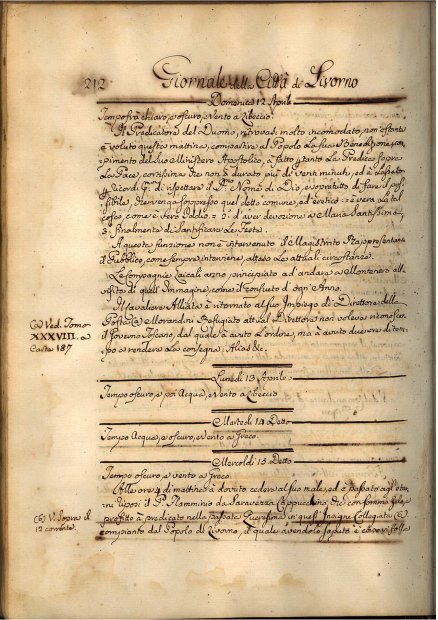 212 Giornale della Città di Livorno
Domenica 12 Aprile
Tempo frà chiaro, e oscuro, e Vento a Libeccio
Il Predicatore del Duomo, ritrovasi molto incomodato, non ostante
à voluto questa mattina, compartire al Popolo la sua Benedizione, com-
pimento del suo Ministero Apostolico, à fatto, la Predica sopra
la Pace, cortissima che non à durato più di venti minuti, ed à lasciato
Ricordi P.mo di rispettare il SS. Nome di Dio, e sopratutto di fare il pos-
sibile, che venga soppresso quel detto comune, ed eretico: è vera la tal
cosa, come è vero Iddio. 2.o d'aver devozione a Maria Santissima
3.o finalmente di Santificare le Feste.
A questa funzione non è intervenuto il Magistrato Rappresentante
il Pubblico, come sempre interviene, atteso le attuali circostanze.
Le Compagnie Laicali anno principiato ad andare a Montenero alla
visita di quell'Immagine come il consueto d'ogn'Anno.
(a) Ved. Tomo
XXXVIII. a
Carta 187
Il Cavaliere Alliata è ritornato al suo Impiego di Direttore della
Posta (a) Morandini Rifugiato attual Direttore non voleva riconoscere
il Governo Toscano, dal quale à avuto l'ordine, ma à avuto che era di tem-
po a rendere la consegna, Alias &c.
Lunedì 13 Aprile
Tempo oscuro, e poi Acqua, e Vento a Libeccio
Martedì 14 Detto
Tempo Acqua, e oscuro, e Vento a Greco
Mercoldì 15 Detto
Tempo oscuro, e vento a Greco
Alle ore 4 di mattina à dovuto cedere al suo male, ed è passato agl'eter-
ni riposi il P. Flamminio da Saravezza Cappuccino, che con sommo
profitto à predicato nella passata Quaresima in quest'Insigne Collegiata (b)
(b) V. Sopra il
12 corrente
compianto dal Popolo di Livorno, il quale avendolo saputo è corso